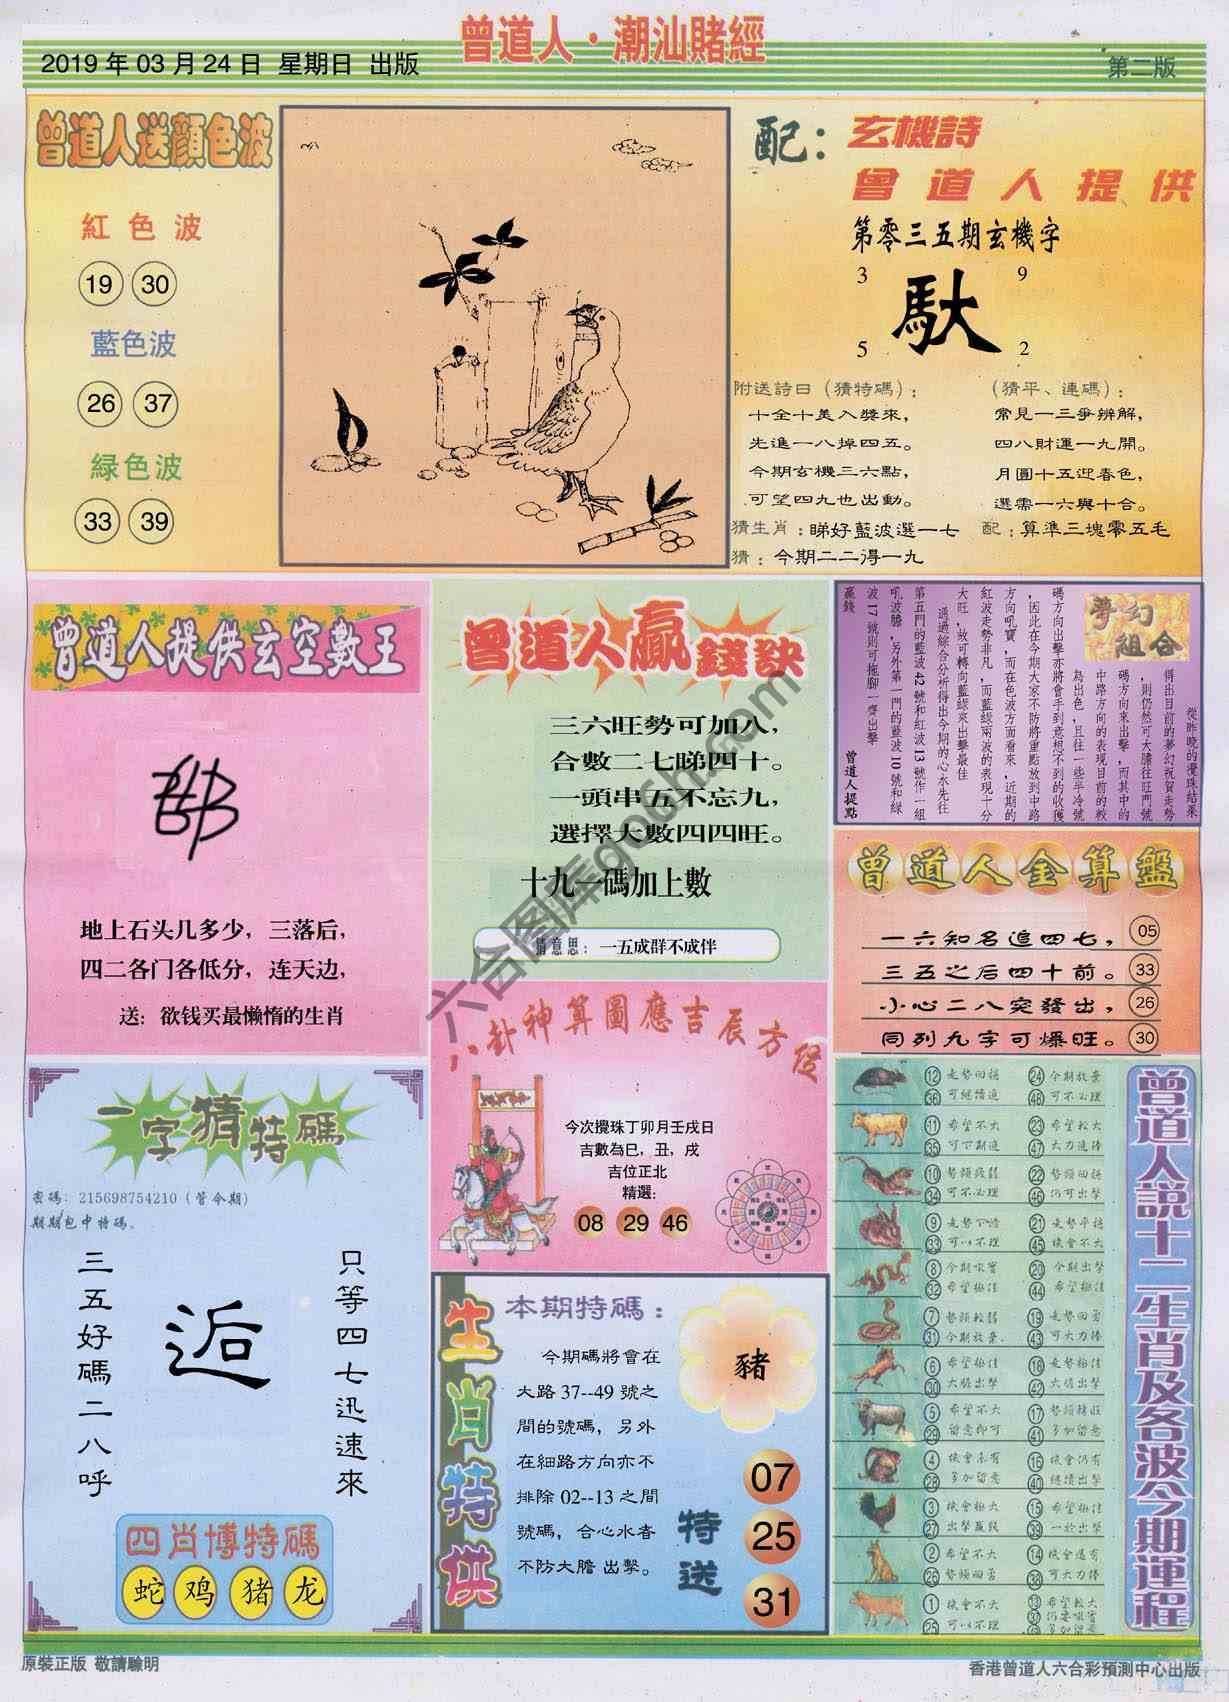 曾道人·潮汕賭經
2019年03月24日 星期日 出版
第二版
曾道人送顏色波
紅色波
19 30
藍色波
26 37
綠色波
33 39
配：
玄機詩
曾道人提供
第零三五期玄機字
3 9
馱
5 2
附送詩曰（猜特碼）：
十全十美入獎來，
先進一八掉四五。
今期玄機三六點，
可望四九也出動。
（猜平、連碼）：
常見一三爭辨解，
四八財運一九開。
月圓十五迎春色，
選需一六與十合。
猜生肖：睇好藍波選一七
配：算準三塊零五毛
猜：今期二二得一九
曾道人提供玄空數王
地上石头几多少，三落后，
四二各门各低分，连天边，
送：欲钱买最懒惰的生肖
曾道人贏錢訣
三六旺勢可加八，
合數二七睇四十。
一頭串五不忘九，
選擇大數四四旺。
十九一碼加上數
猜意思：一五成群不成伴
夢幻
組合
從昨晚的攪珠結果
得出目前的夢幻祝賀走勢
，則仍然可大膽往旺門號
碼方向來出擊，而其中的
中路方向的表現目前的較
為出色，且往一些半冷號
碼方向出擊亦將會手到意想不到的收獲
，因此在今期大家不防將重點放到中路
方向吼寶，而在色波方面看來，近期的
紅波走勢非凡，而藍綠兩波的表現十分
大旺，故可轉向藍綠來出擊最佳
通過綜合分析得出今期的心水先往
第五門的藍波42號和紅波13號作一組
吼波膽，另外第一門的藍波10號和綠
波17號則可拖腳一齊出擊
贏錢
曾道人提點
曾道人金算盤
一六知名追四七， 05
三五之后四十前。 33
小心二八突發出， 26
同列九字可爆旺。 30
八卦神算圖應吉辰方位
今次攪珠丁卯月壬戌日
吉數為巳，丑，戌
吉位正北
精選：
08 29 46
一字猜特碼
密碼：215698754210（管令期）
期期包中特碼。
只等四七迅速來
逅
三五好碼二八呼
四肖博特碼
蛇 鸡 猪 龙
生肖特供
本期特碼：
今期碼將會在
大路37--49號之
間的號碼，另外
在細路方向亦不
排除02--13之間
號碼，合心水者
不防大膽出擊。
豬
特送
07
25
31
曾道人說十二生肖及各波今期運程
12 24
36 可繼續追 48 可不必理
11 希望不大 23 希望較大
35 可下期追 47 大力追捧
10 22
34 可不必理 46 仍可出擊
9 21 走勢平穩
33 可以不理 45 機會不大
8 今期吸實 20 今期出擊
32 希望極佳 44 希望極佳
7 勢頭較弱 19 走勢回勇
31 今期放棄 43 可大力捧
6 希望極佳 18 走勢極佳
30 大膽出擊 42 大膽出擊
5 希望不大 17
29 留意即可 41 多加留意
4 機會未有 16 機會仍有
28 多加留意 40 繼續出擊
3 機會極大 15 希望極佳
27 出擊贏錢 39 一於出擊
2 希望不大 14 機會還有
26 勢頭回勇 38 可大力捧
1 機會不大 13 希望較大
25 可以不理 37
多加留意
原裝正版 敬請騐明
香港曾道人六合彩預測中心出版
六合图库906h.com